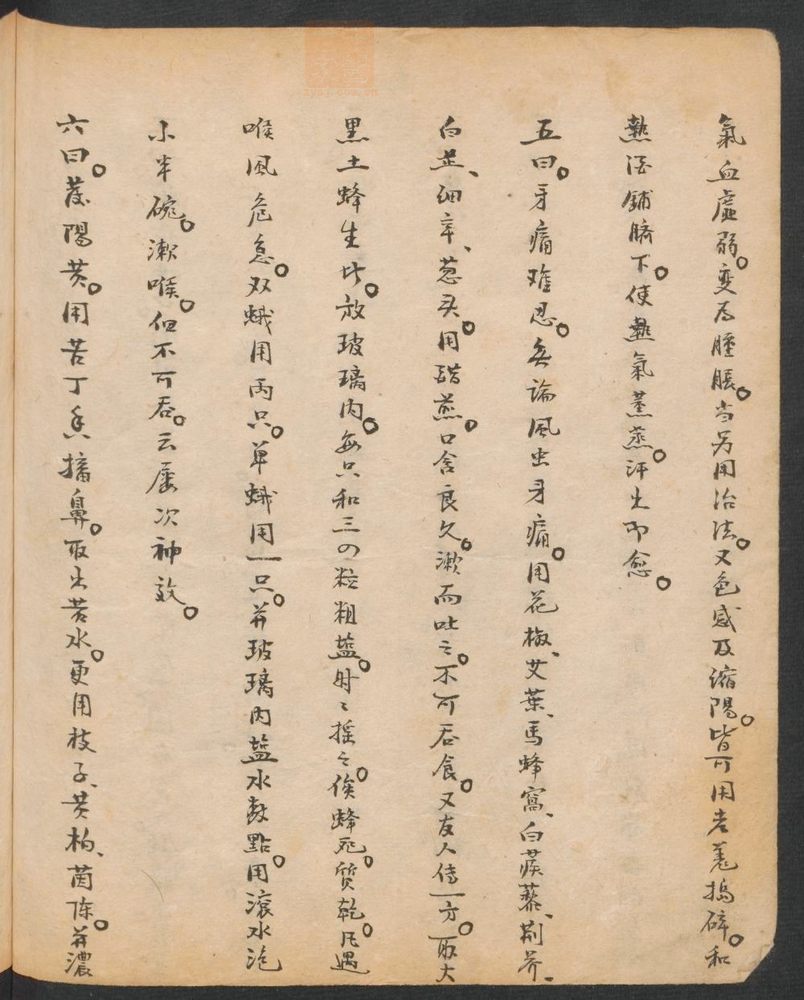 氣血虛弱。變为腫脹。当另用治法。又色感及缩陽。皆可用老羌搗碎。和
熱酒鋪臍下。使熱氣薰蒸。汗出即愈。
五曰。牙痛难忍。無論風虫牙痛。用花椒、艾葉、馬蜂窩、白蒺藜、荆芥、
白芷、细辛、葱头。用醋煎。口含良久。漱而吐之。不可吞食。又友人传一方。取大
黑土蜂生者。放玻璃内。每只和三四粒粗盐。时々摇之。俟蜂死。質乾。凡遇
喉風危急。双蛾用两只。单蛾用一只。并玻璃内盐水数點。用滚水泡
小半碗。漱喉。但不可吞。云屡次神效。
六曰。發陽黄。用苦丁香搐鼻。取出苦水。更用枝子、黄柏、茵陈。并濃